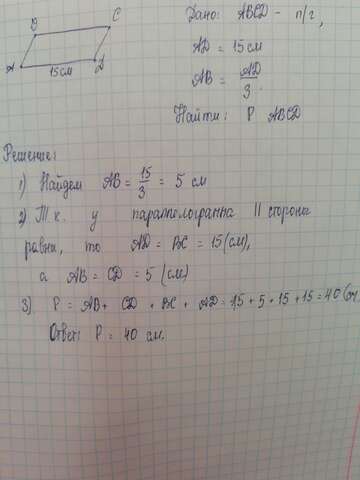 B
C
A
D
15 см
Дано: ABCD - п/г,
AD = 15 см
AB = AD/3
Найти: P ABCD
Решение:
1) Найдем AB = 15/3 = 5 см
2) Т.к. у параллелограмма II стороны
равны, то AD = BC = 15 (см),
а AB = CD = 5 (см)
3) P = AB + CD + BC + AD = 15 + 5 + 15 + 15 = 40 (см
Ответ: P = 40 см.